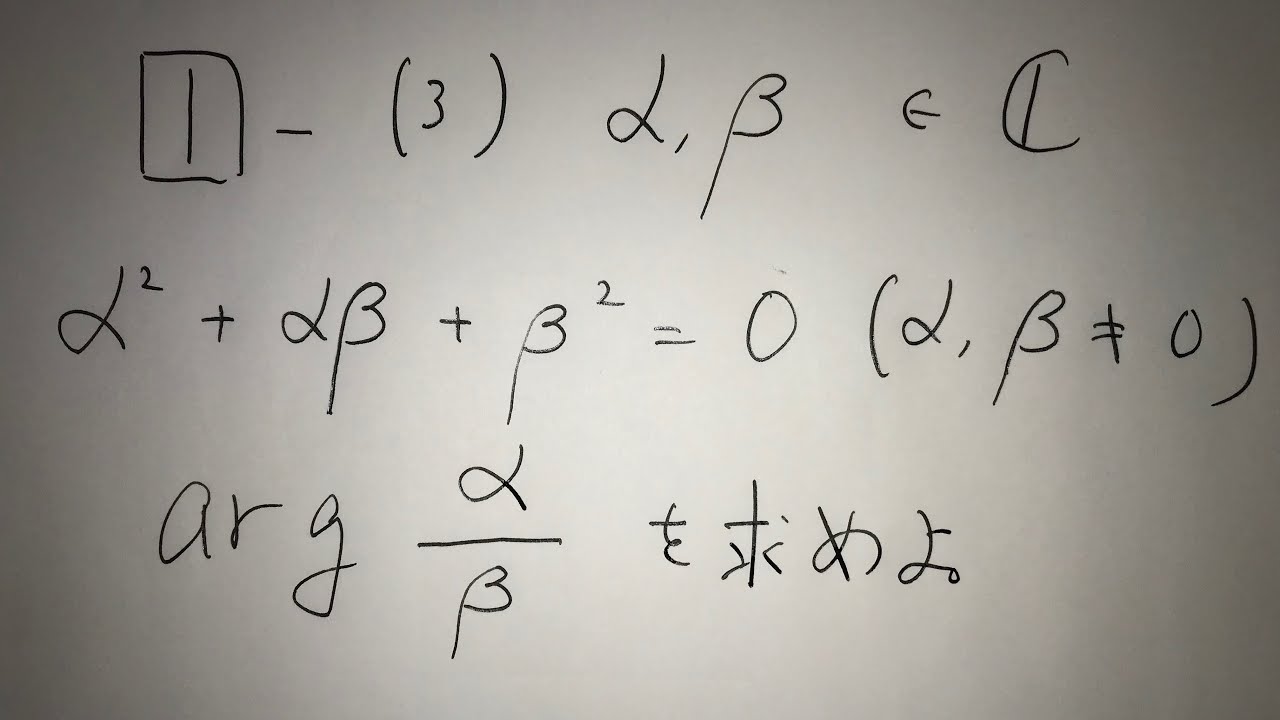 1 - (3) α, β ∈ ℂ
α² + αβ + β² = 0 (α, β ≠ 0)
arg α/β を求めよ。